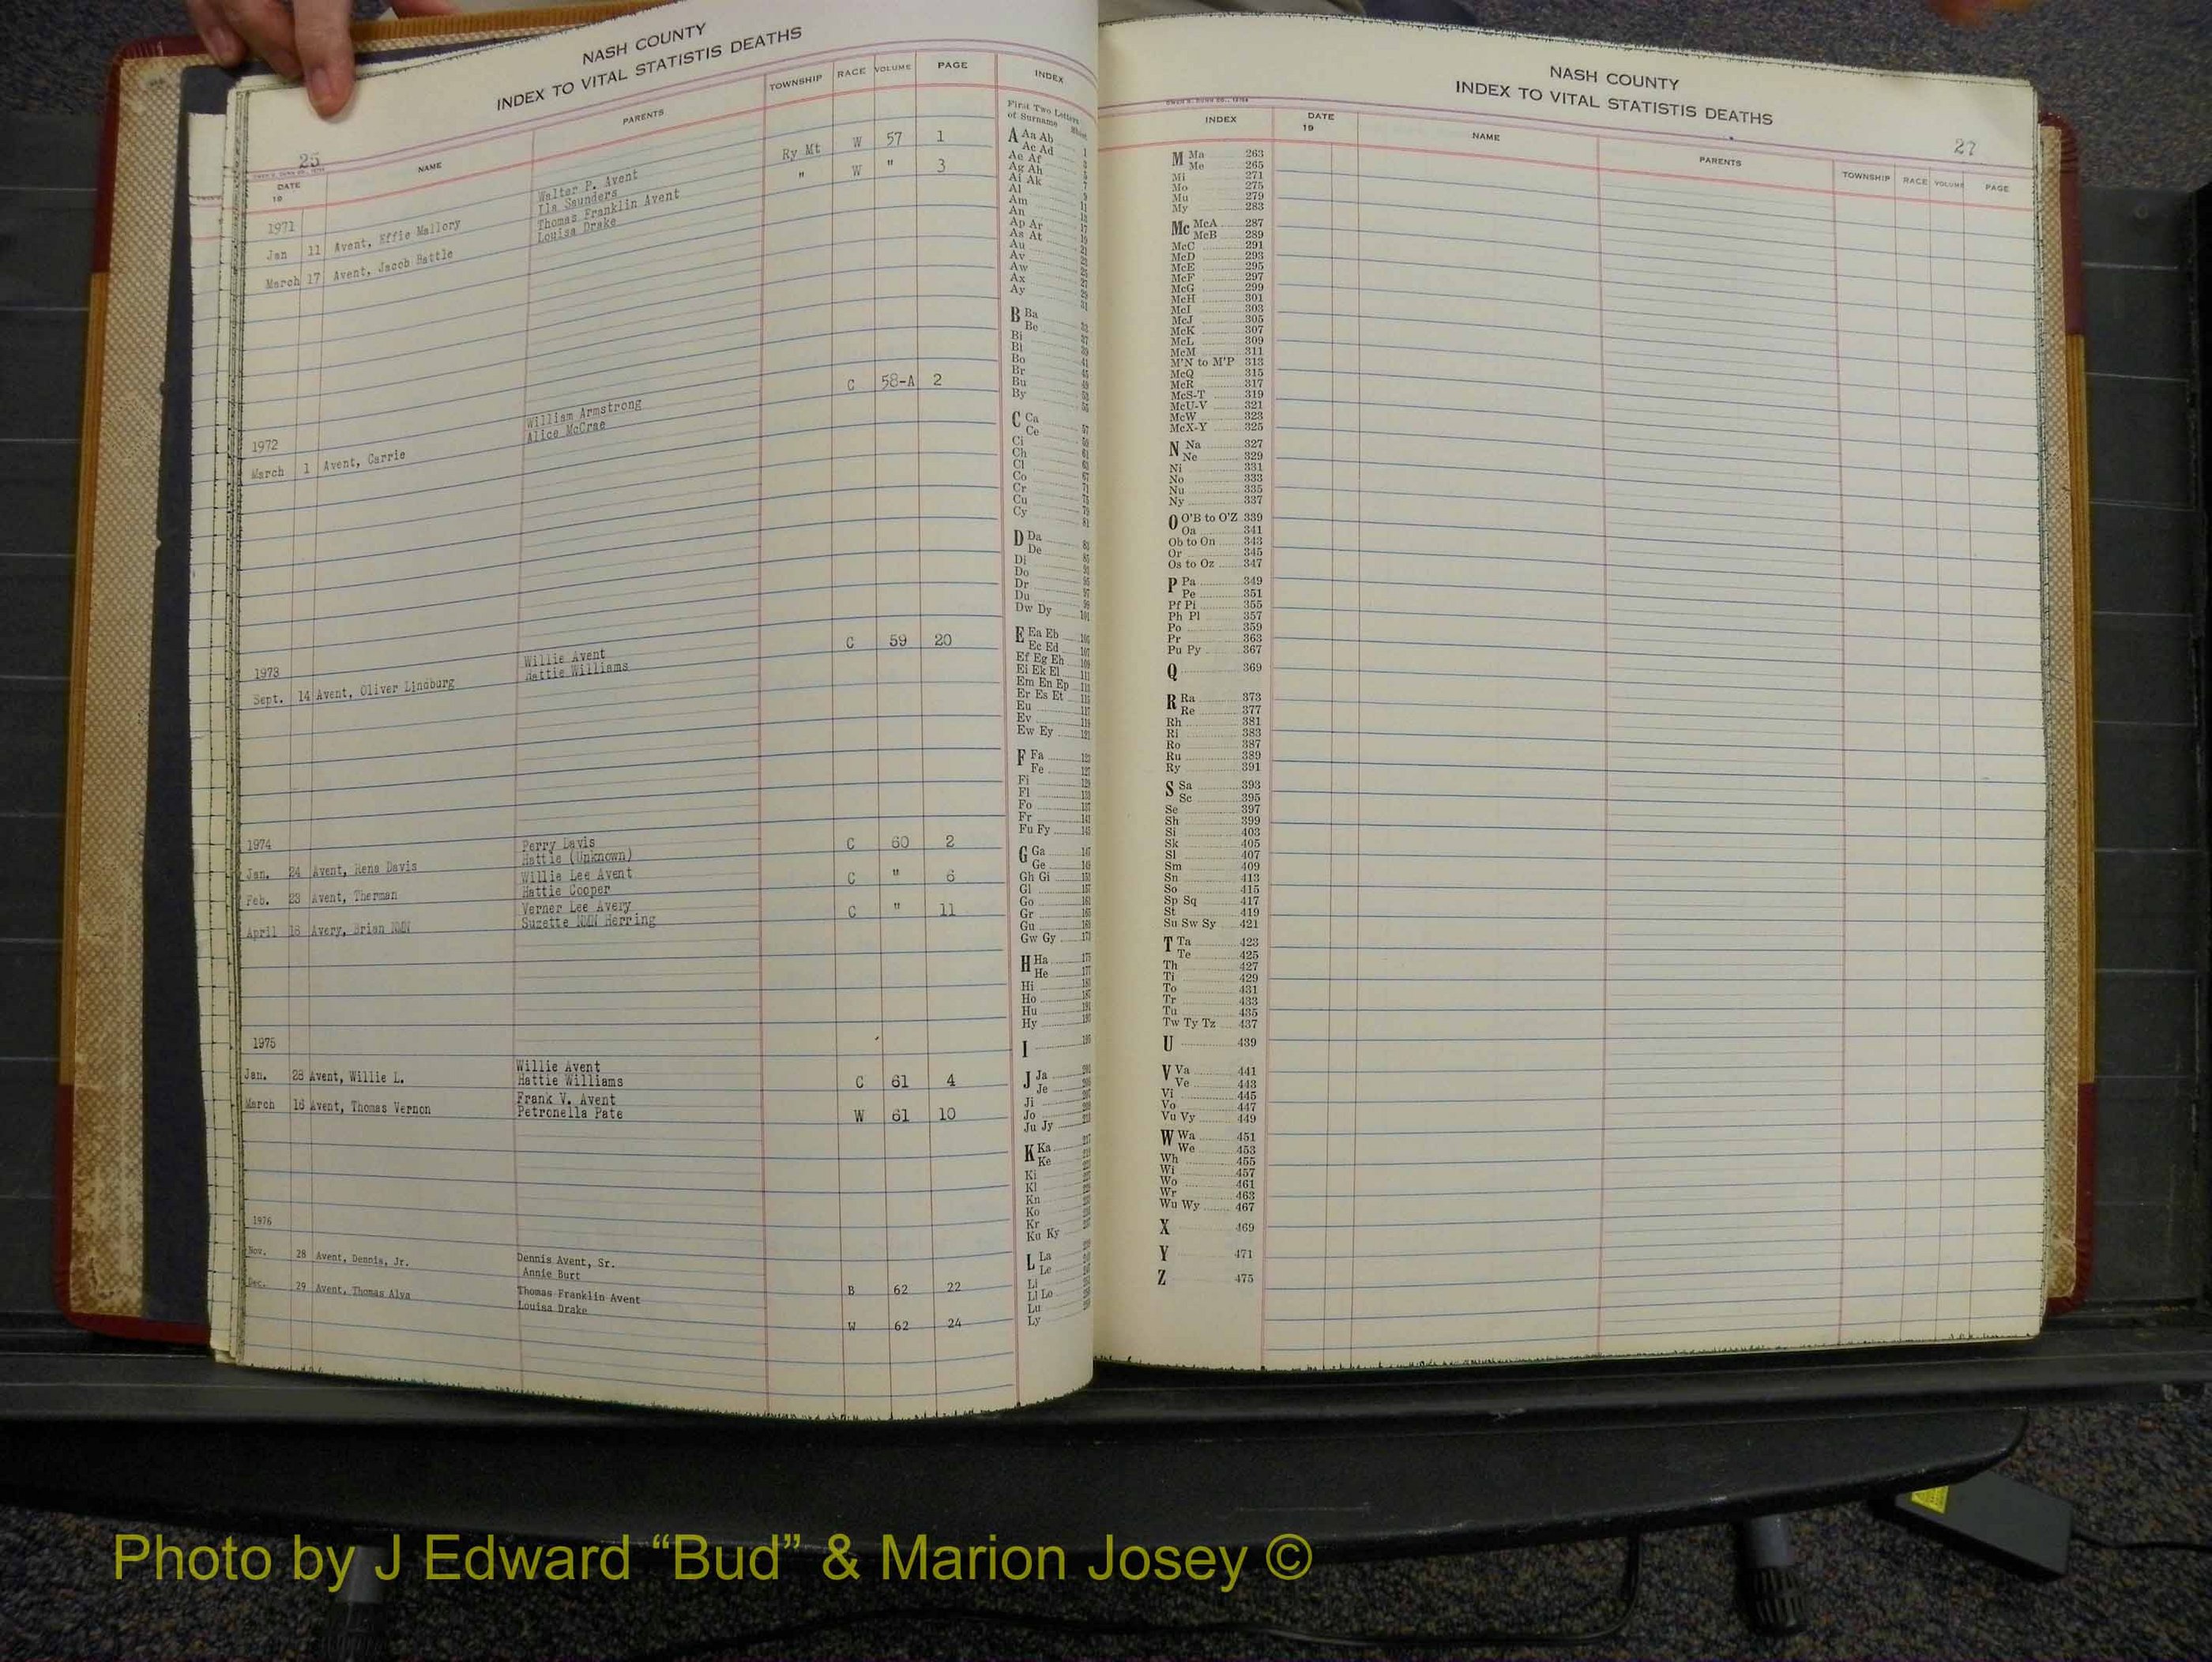 NASH COUNTY
INDEX TO VITAL STATISTIS DEATHS
25
DATE 19 NAME PARENTS TOWNSHIP RACE VOLUME PAGE
1971
Jan 11 Avent, Effie Mallory Walter P. Avent Ry Mt W 57 1
Ila Saunders
March 17 Avent, Jacob Battle Thomas Franklin Avent " W " 3
Louisa Drake
1972
March 1 Avent, Carrie William Armstrong C 58-A 2
Alice McCrae
1973
Sept. 14 Avent, Oliver Lindburg Willie Avent C 59 20
Hattie Williams
1974
Jan. 24 Avent, Rena Davis Perry Davis C 60 2
Hattie (Unknown)
Feb. 23 Avent, Therman Willie Lee Avent C " 6
Hattie Cooper
April 18 Avery, Brian NMN Verner Lee Avery C " 11
Suzette NMN Herring
1975
Jan. 28 Avent, Willie L. Willie Avent C 61 4
Hattie Williams
March 16 Avent, Thomas Vernon Frank V. Avent W 61 10
Petronella Pate
1976
Nov. 28 Avent, Dennis, Jr. Dennis Avent, Sr. B 62 22
Annie Burt
Dec. 29 Avent, Thomas Alva Thomas Franklin Avent W 62 24
Louisa Drake
INDEX
First Two Letters
of Surname
A Aa Ab
Ac Ad
Ae Af
Ag Ah
Ai Ak
Al
Am
An
Ap Ar
As At
Au
Av
Aw
Ax
Ay
B Ba
Be
Bi
Bl
Bo
Br
Bu
By
C Ca
Ce
Ci
Ch
Cl
Co
Cr
Cu
Cy
D Da
De
Di
Do
Dr
Du
Dw Dy
E Ea Eb
Ec Ed
Ef Eg Eh
Ei Ek El
Em En Ep
Er Es Et
Eu
Ev
Ew Ey
F Fa
Fe
Fi
Fl
Fo
Fr
Fu Fy
G Ga
Ge
Gh Gi
Gl
Go
Gr
Gu
Gw Gy
H Ha
He
Hi
Ho
Hu
Hy
I
J Ja
Je
Ji
Jo
Ju Jy
K Ka
Ke
Ki
Kl
Kn
Ko
Kr
Ku Ky
L La
Le
Li
Ll Lo
Lu
Ly
NASH COUNTY
INDEX TO VITAL STATISTIS DEATHS
27
INDEX DATE 19 NAME PARENTS TOWNSHIP RACE VOLUME PAGE
M Ma 263
Me 265
Mi 271
Mo 275
Mu 279
My 283
Mc McA 287
McB 289
McC 291
McD 293
McE 295
McF 297
McG 299
McH 301
McI 303
McJ 305
McK 307
McL 309
McM 311
M'N to M'P 313
McQ 315
McR 317
McS-T 319
McU-V 321
McW 323
McX-Y 325
N Na 327
Ne 329
Ni 331
No 333
Nu 335
Ny 337
O O'B to O'Z 339
Oa 341
Ob to On 343
Or 345
Os to Oz 347
P Pa 349
Pe 351
Pf Pi 355
Ph Pl 357
Po 359
Pr 363
Pu Py 367
Q 369
R Ra 373
Re 377
Rh 381
Ri 383
Ro 387
Ru 389
Ry 391
S Sa 393
Sc 395
Se 397
Sh 399
Si 403
Sk 405
Sl 407
Sm 409
Sn 413
So 415
Sp Sq 417
St 419
Su Sw Sy 421
T Ta 423
Te 425
Th 427
Ti 429
To 431
Tr 433
Tu 435
Tw Ty Tz 437
U 439
V Va 441
Ve 443
Vi 445
Vo 447
Vu Vy 449
W Wa 451
We 453
Wh 455
Wi 457
Wo 461
Wr 463
Wu Wy 467
X 469
Y 471
Z 475
Photo by J Edward “Bud” & Marion Josey ©